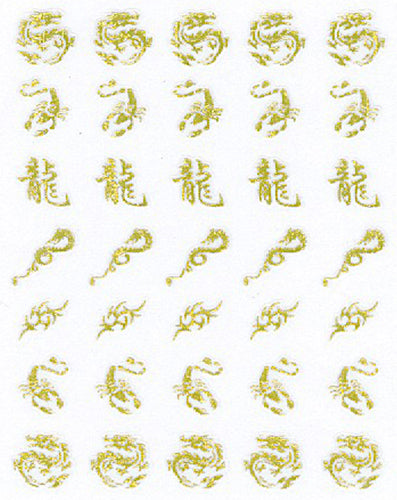 龍 龍 龍 龍 龍